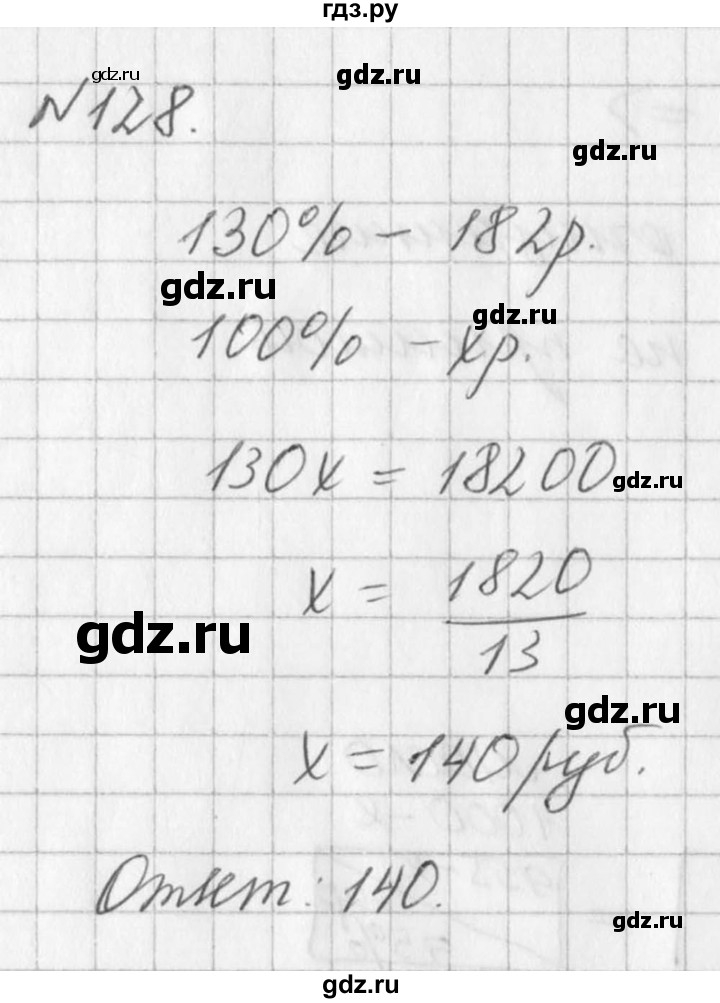 гдз.ру
gdz.ru
gdz.ru
№128.
gdz.ru
130% – 182р.
gdz.ru
100% – xр.
gdz.ru
130x = 18200
gdz.ru
x = 1820/13
gdz.ru
gdz.ru
x = 140 руб.
Ответ: 140.
gdz.ru
gdz.ru